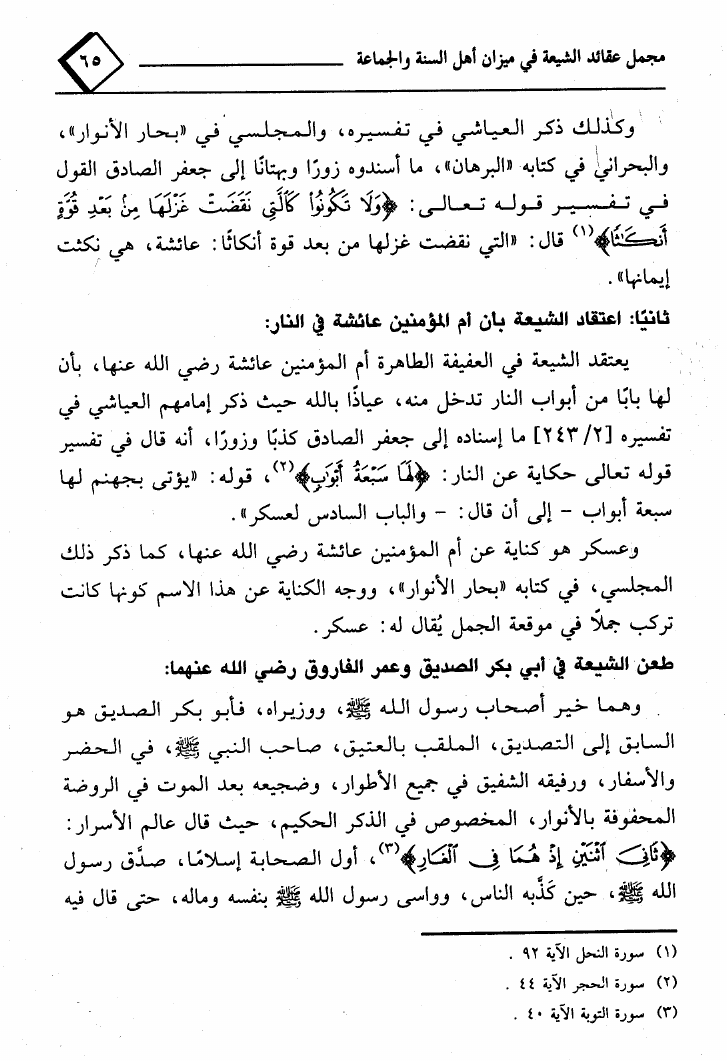 مجمل عقائد الشيعة في ميزان أهل السنة والجماعة
٦٥
وكذلك ذكر العياشي في تفسيره، والمجلسي في «بحار الأنوار»،
والبحراني في كتابه «البرهان»، ما أسندوه زورًا وبهتانًا إلى جعفر الصادق القول
في تفسير قوله تعالى: ﴿وَلَا تَكُونُوا۟ كَٱلَّتِى نَقَضَتْ غَزْلَهَا مِنۢ بَعْدِ قُوَّةٍ
أَنكَـٰثًا﴾(١) قال: «التي نقضت غزلها من بعد قوة أنكاثًا: عائشة، هي نكثت
إيمانها».
ثانيًا: اعتقاد الشيعة بأن أم المؤمنين عائشة في النار:
يعتقد الشيعة في العفيفة الطاهرة أم المؤمنين عائشة رضي الله عنها، بأن
لها بابًا من أبواب النار تدخل منه، عياذًا بالله حيث ذكر إمامهم العياشي في
تفسيره [٢٤٣/٢] ما إسناده إلى جعفر الصادق كذبًا وزورًا، أنه قال في تفسير
قوله تعالى حكاية عن النار: ﴿لَهَا سَبْعَةُ أَبْوَٰبٍ﴾(٢)، قوله: «يؤتى بجهنم لها
سبعة أبواب - إلى أن قال: - والباب السادس لعسكر».
وعسكر هو كناية عن أم المؤمنين عائشة رضي الله عنها، كما ذكر ذلك
المجلسي، في كتابه «بحار الأنوار»، ووجه الكناية عن هذا الاسم كونها كانت
تركب جملًا في موقعة الجمل يُقال له: عسكر.
طعن الشيعة في أبي بكر الصديق وعمر الفاروق رضي الله عنهما:
وهما خير أصحاب رسول الله ﷺ، ووزيراه، فأبو بكر الصديق هو
السابق إلى التصديق، الملقب بالعتيق، صاحب النبي ﷺ، في الحضر
والأسفار، ورفيقه الشفيق في جميع الأطوار، وضجيعه بعد الموت في الروضة
المحفوفة بالأنوار، المخصوص في الذكر الحكيم، حيث قال عالم الأسرار:
﴿ثَانِىَ ٱثْنَيْنِ إِذْ هُمَا فِى ٱلْغَارِ﴾(٣)، أول الصحابة إسلامًا، صدَّق رسول
الله ﷺ، حين كَذَّبه الناس، وواسى رسول الله ﷺ بنفسه وماله، حتى قال فيه
(١) سورة النحل الآية ٩٢ .
(٢) سورة الحجر الآية ٤٤ .
(٣) سورة التوبة الآية ٤٠ .